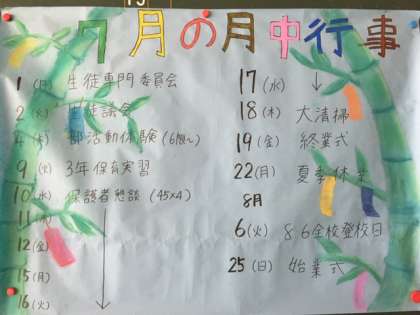 7月の月中行事
1(月) 生徒専門委員会
2(火) 生徒議会
4(木) 部活動体験(6限~)
9(火) 3年保育実習
10(水) 保護者懇談(45×4)
11(木)
12(金)
15(月)
16(火)
17(水)
18(木) 大清掃
19(金) 終業式
22(月) 夏季休業
8月
6(火) 86全校登校日
25(日) 始業式